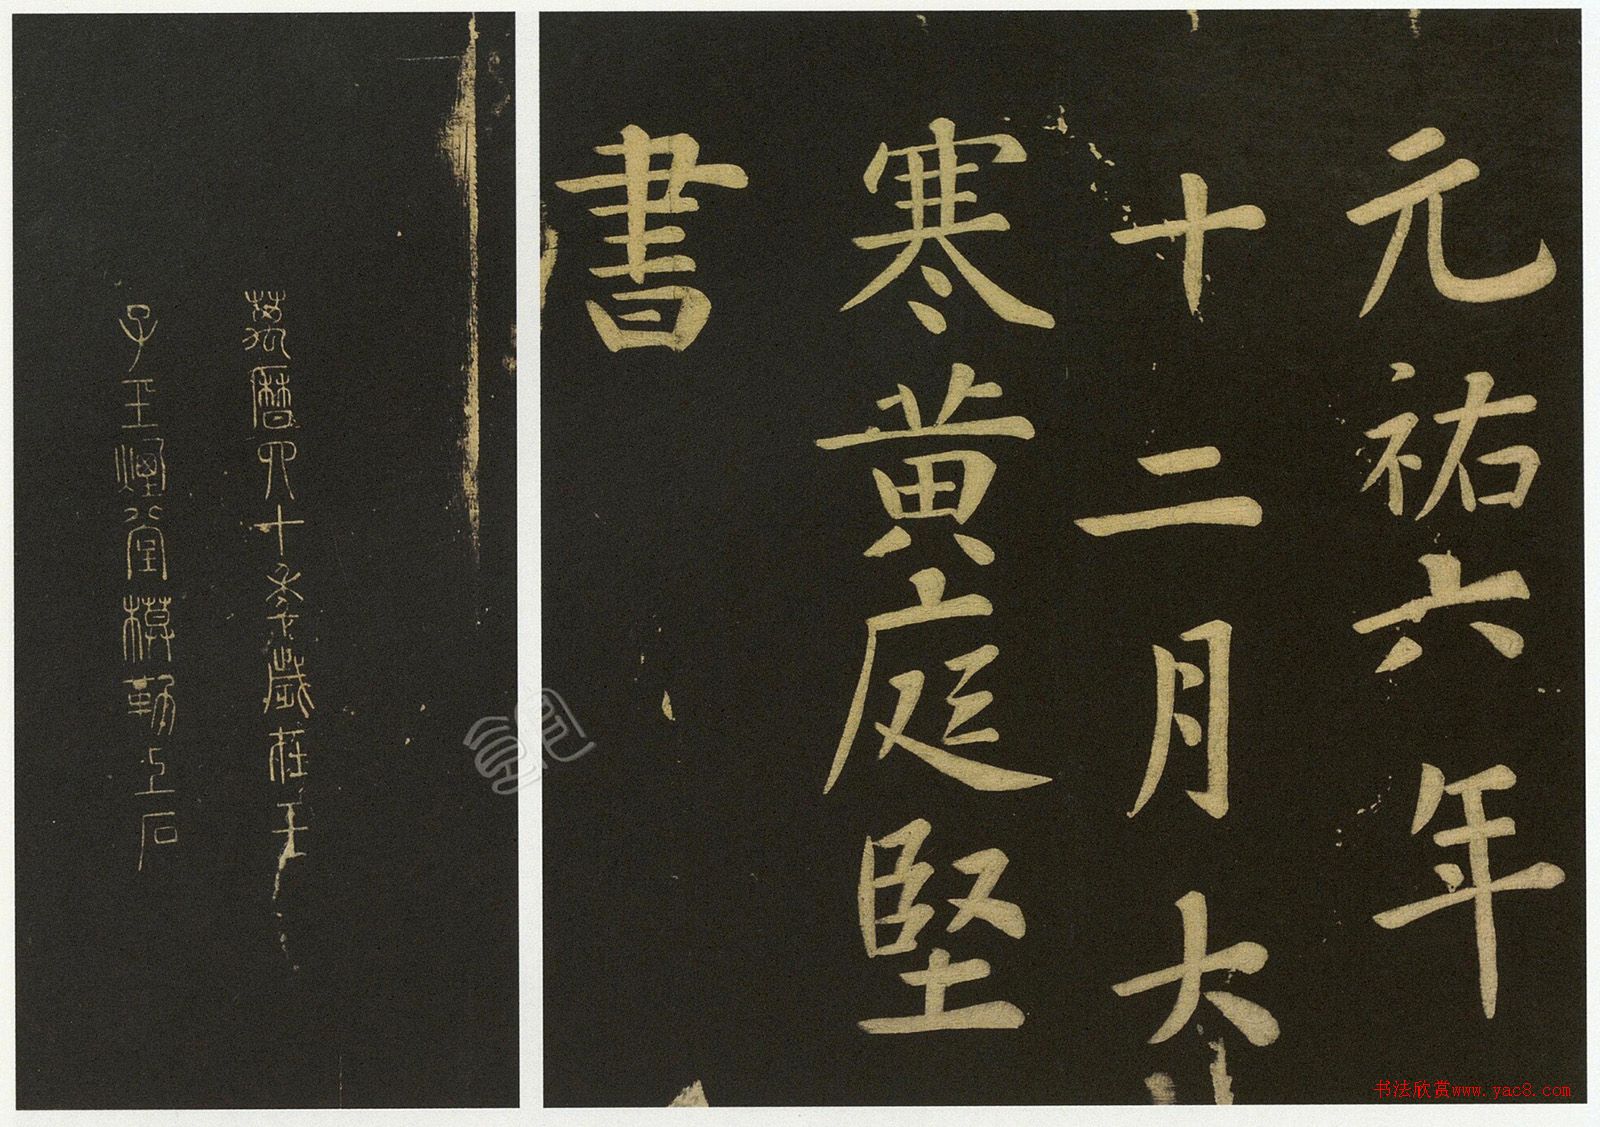 元祐六年
十二月大
寒黄庭堅
書
萬曆四十季歲在壬
子王煙堂模勒上石
书法欣赏www.yac8.com